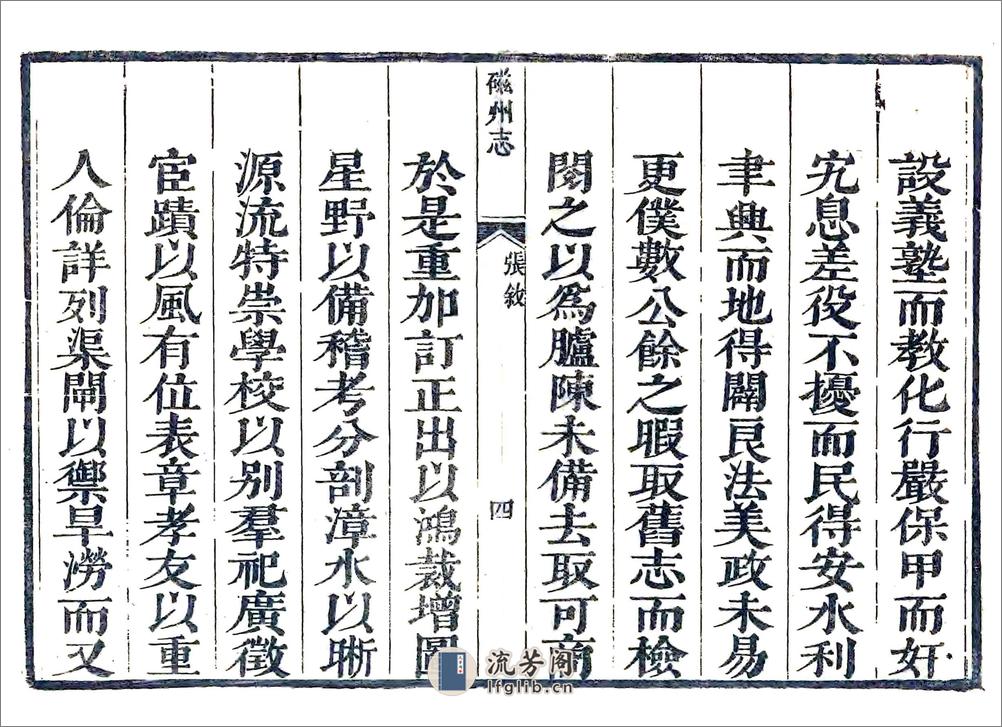 設義塾而教化行嚴保甲而奸
宄息差役不擾而民得安水利
聿興而地得闢良法美政未易
更僕數公餘之暇取舊志而檢
閱之以爲臚陳未備去取可商
磁州志
張敘
四
於是重加訂正出以鴻裁增圖
星野以備稽考分剖漳水以晣
源流特崇學校以别羣祀廣徵
宦蹟以風有位表章孝友以重
人倫詳列渠閘以禦旱澇而又
流芳阁
lfglib.cn